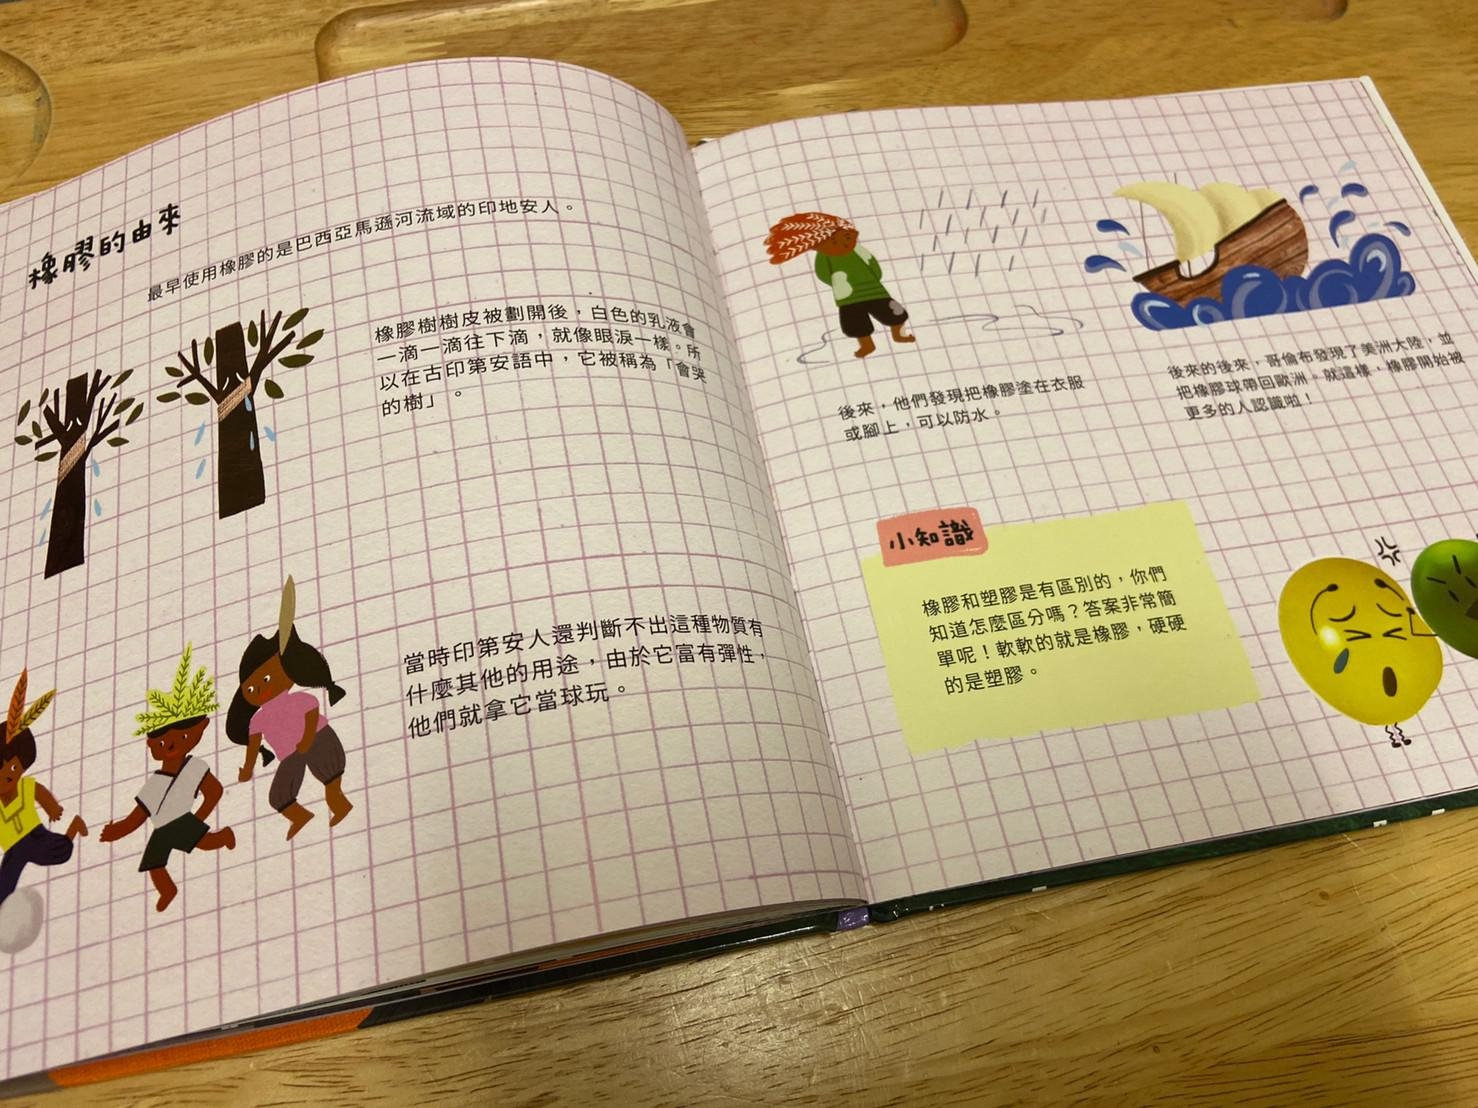 橡膠的由來
最早使用橡膠的是巴西亞馬遜河流域的印地安人。
橡膠樹樹皮被劃開後，白色的乳液會
一滴一滴往下滴，就像眼淚一樣。所
以在古印第安語中，它被稱為「會哭
的樹」。
當時印第安人還判斷不出這種物質有
什麼其他的用途，由於它富有彈性，
他們就拿它當球玩。
後來，他們發現把橡膠塗在衣服
或腳上，可以防水。
後來的後來，哥倫布發現了美洲大陸，並
把橡膠球帶回歐洲。就這樣，橡膠開始被
更多的人認識啦！
小知識
橡膠和塑膠是有區別的，你們
知道怎麼區分嗎？答案非常簡
單呢！軟軟的就是橡膠，硬硬
的是塑膠。